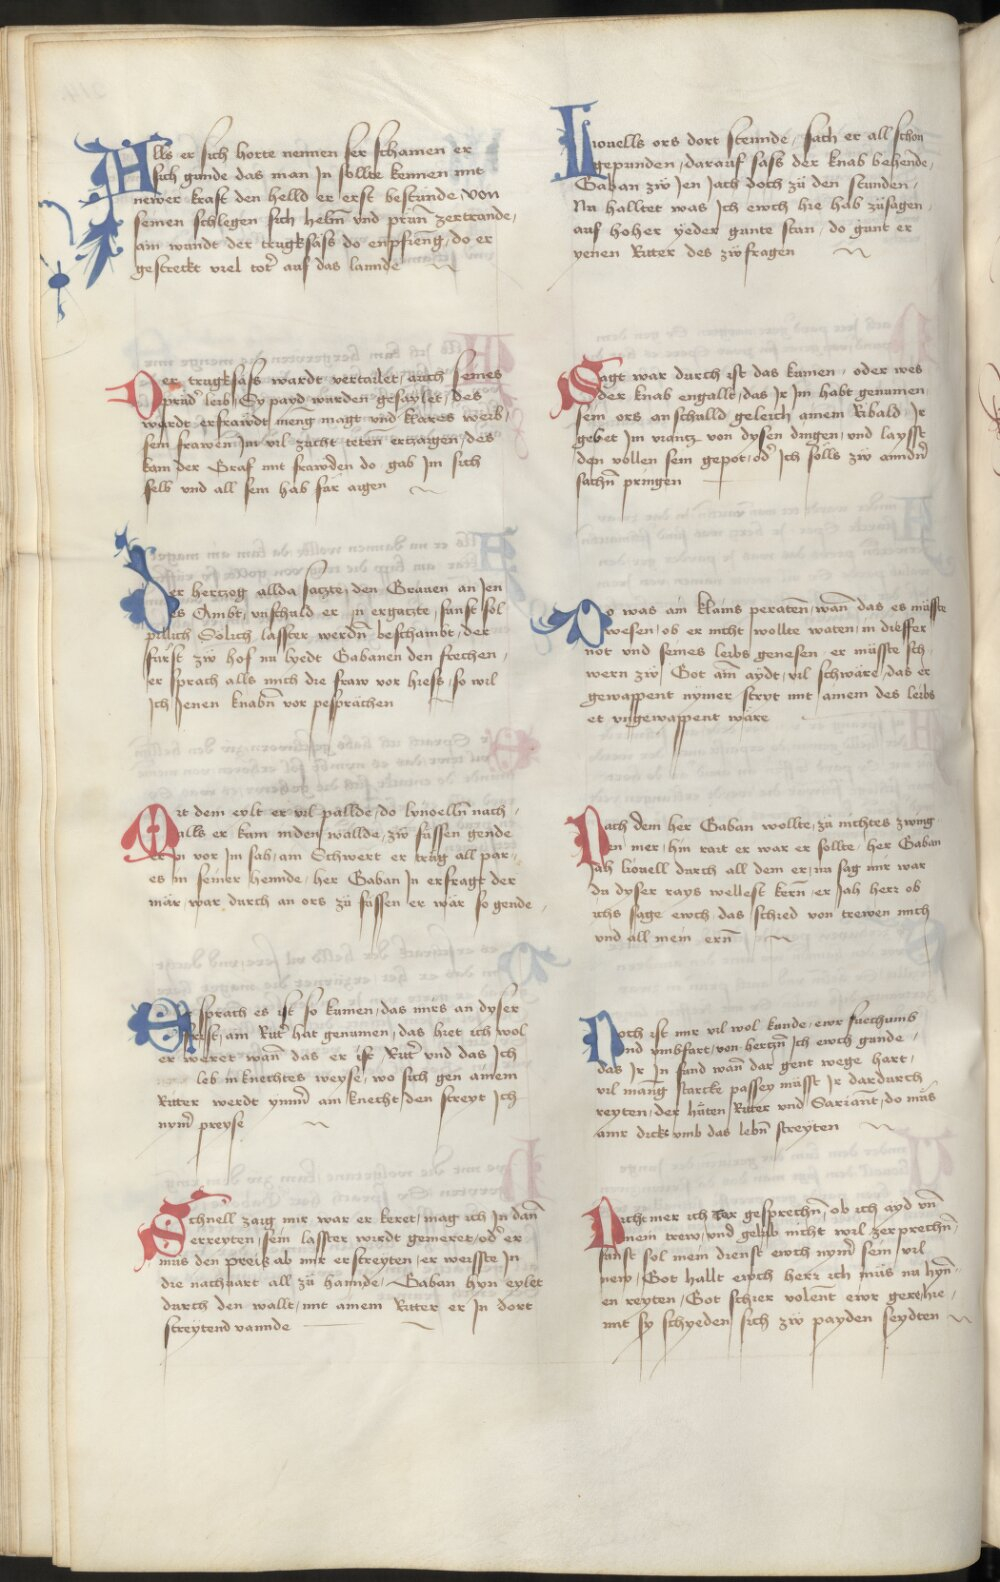 Alls er sich horte nennen ser schamen er
sich gunde das man Jn sollte kennen mit
newer kraft den helld er erst bestunde, von
seinen schlegen sich helm̄ vnd prun̄ zertrande,
ain wundt der trugksäss do enpfieng, do er
gestreckt viel tot̄ auf das lannde
Der trugksäss wardt vertailet, auch seines
prud̄ leib, Sy payd wurden gesaylet, des
wardt erfrawdt meng magt vnd klares weib,
sein frawen Jm vil zucht teten̄ ertzaigen, des
kam der Graf mit frawden do gab Jm sich
selb vnd all sein hab für aigen
Der hertzog allda satzte, den Grauen an Jen
es Ambt, vnschuld er in ergatzte, sunst sol
pillich Solich lasster werdn̄ beschambt, der
fürst zw̄ hof nu lyedt Gabanen den frechen,
er sprach alls mich die fraw vor hiess, so wil
Jch Jenen knabn̄ vor pesprächen
Mit dem eylt er vil pallde, do lynoelln̄ nach,
alls er kam inden wallde, zw̄ fussen gende
er Jn vor Jm sah, ain Schwert er trüg all par,,
es in seiner hennde, her Gaban Jn erfragt der
mär, war durch an ors zü füssen er wär so gende,
Er sprach es ist so kumen, das mirs an dyser
frist, ain Ritt̄ hat genumen, das hiet ich wol
er weret wan̄ das er ist Ritt̄ vnd das Jch
leb in knechtes weyse, wo sich gen ainem
Ritter werdt ymm̄ ain knecht, den streyt Jch
nym̄ preyse
Schnell zaig mir war er keret, mag ich Jn dan̄
erreyten, sein lasster wirdt gemeret, od̄ er
müs den preis ab mir erstreyten, er weisste Jn
die nachuart all zü hannde, Gaban hyn eylet
durch den wallt, mit ainem Ritter er Jn dort
streytend vannde
Liouells ors dort stennde, sach er all schon
gepunden, darauf sass der knab behende,
Gaban zw̄ Jen Jach doch zü den stunden,
Nu halltet was Jch ewch hie hab züsagen,
auf hoher yeder gunte stan, do gunt er
yenen Ritter des zw̄fragen
Sagt war durch ist das kumen, oder wes
der knab engallt, das Jr Jm habt genumen
sein ors an schulld geleich ainem Ribald, Jr
gebet Jm viantz von dysen dingen, vnd laysst
den vollen sein gepot, od̄ Jch sölls zw̄ anndn̄
sachn̄ pringen
Do was ain klains peraten̄, wan̄ das es müsste
wesen, ob er nicht wollte waten, in diesser
not vnd seines leibs genesen, er müsste sch,
wern zw̄ Got ain̄ aydt, vil schwäre, das er
gewappent nymer stryt mit ainem des leibs
et vngewappent ware
Nach dem her Gaban wollte, zü nichtes zwing,
en mer, hin rait er war er sollte, her Gaban
Jah liouell durch all dem er, nu sag mir war
du dyser rays wellest kern̄, er Jah herr ob
ichs sage ewch das schied von trewen mich
vnd all mein ern̄
Doch ist mir vil wol kunde, ewr suechumb
vnd vmbfart, von hertzn̄ Jch ewch gunde,
das Jr Jn fund wan̄ dar gent wege hart,
vil manḡ starcke passey müsst Jr dardurch
reyten, der hüten Ritter vnd Sariant, do müs
amr dicks vmb das lebn̄ streyten
Nicht mer ich tar gesprechn̄, ob ich ayd vn̄
mein trew, vnd gelüb nicht wil zerprechn̄,
sunst sol mein dienst ewch nym̄ sein, vil
new, Got hallt ewch herr ich müs nu hyn̄,
en reyten, Got schier volent ewr gere, hie,
mit sy schyeden sich zw̄ payden seydten